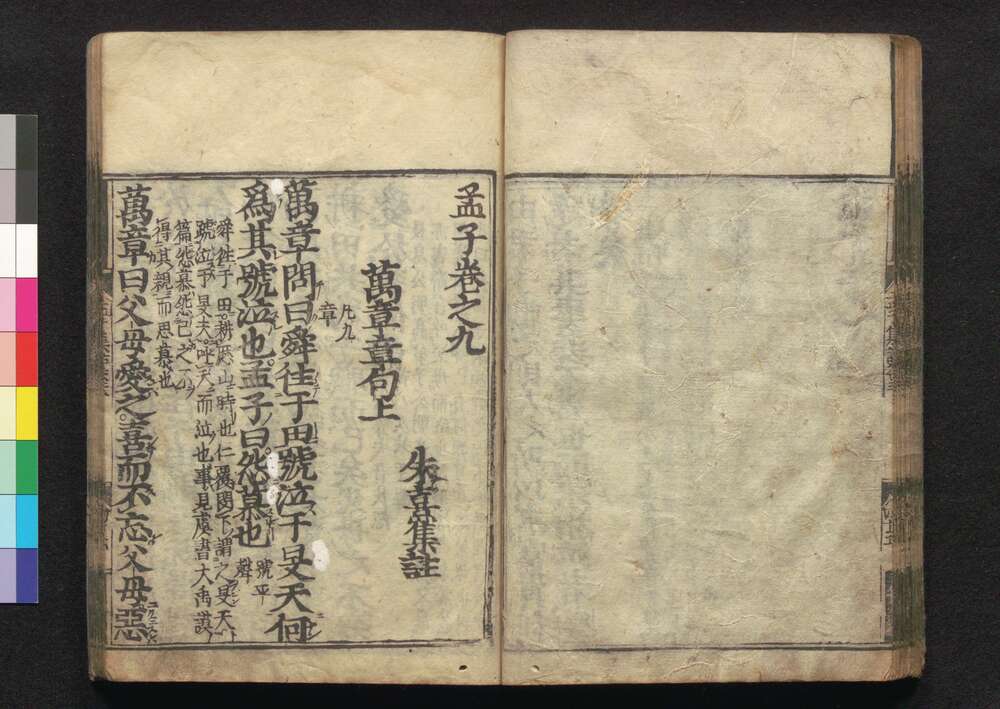 孟子卷之九
朱熹集註
萬章章句上
凡九
章
萬章問曰舜往于田號泣于旻天何
爲其號泣也孟子曰怨慕也
號平
聲
舜往于田耕歷山時也仁覆閔下謂之旻天
號泣于旻天呼天而泣也事見虞書大禹謨
篇怨慕怨己之不
得其親而思慕也
萬章曰父母愛之喜而不忘父母惡